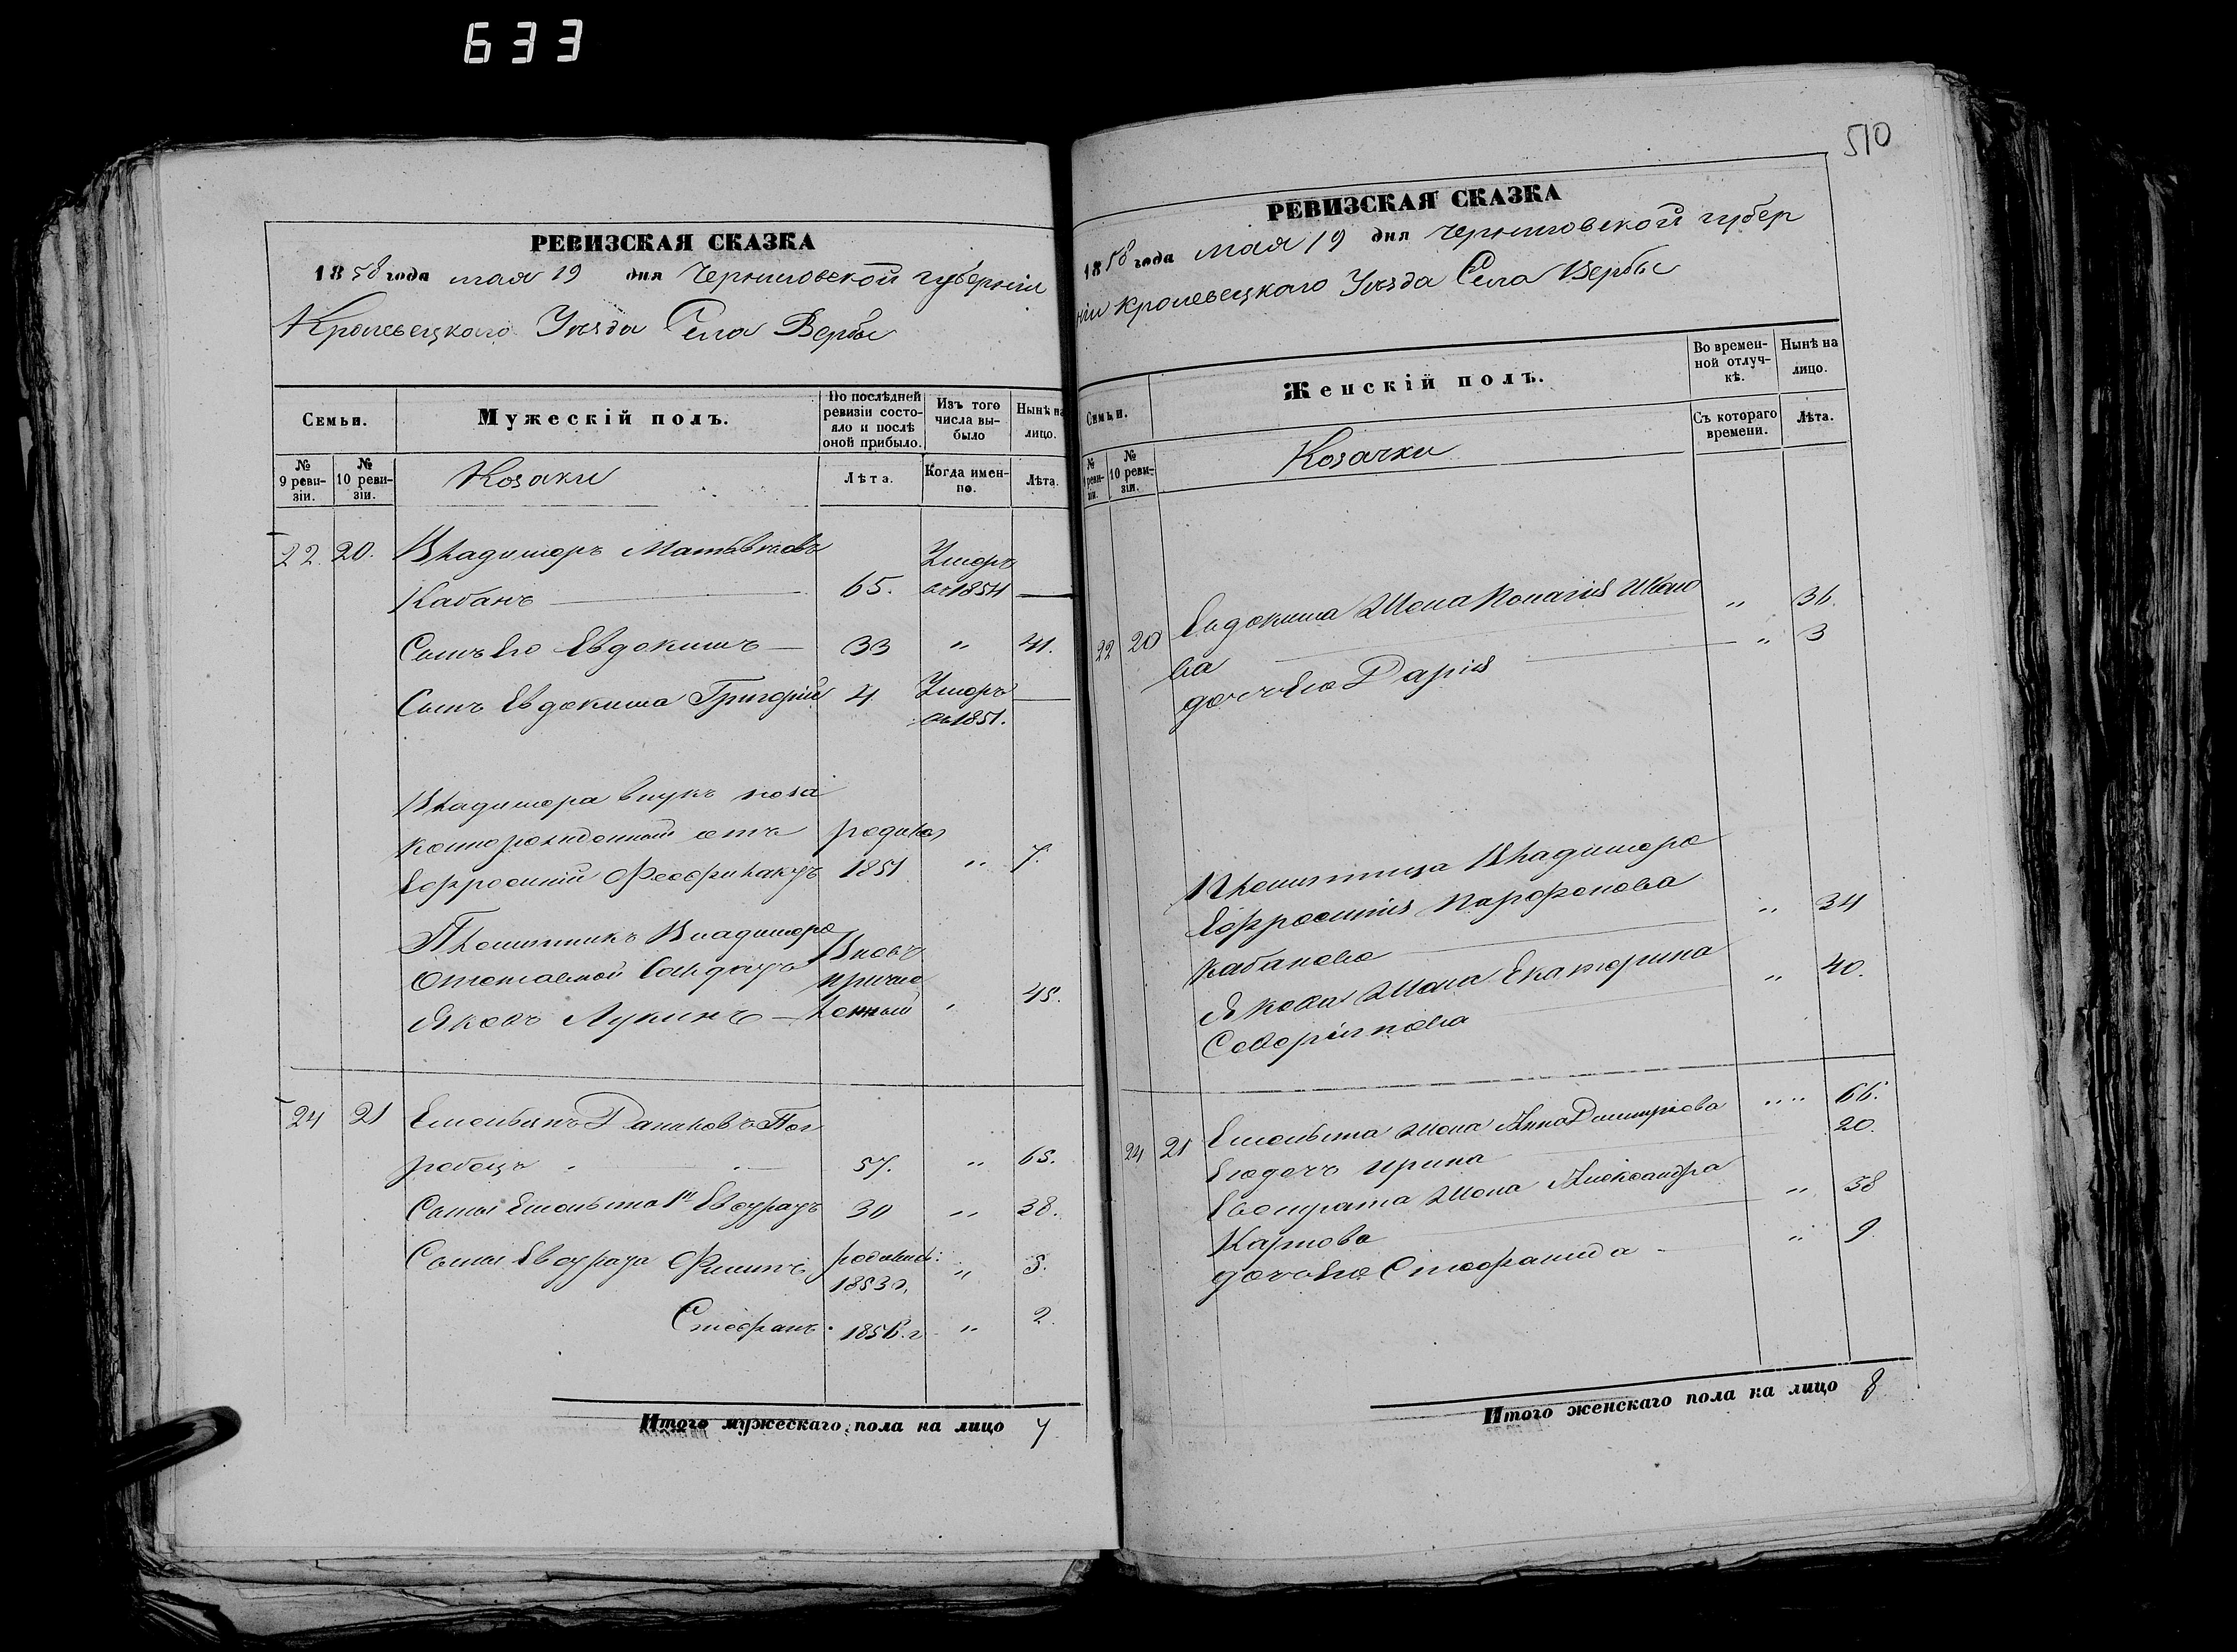 633
510
РЕВИЗСКАЯ СКАЗКА
1858 года мая 19 дня Черниговской губерніи
Кролевецкаго Уезда Села Вербы
Семьи.
Мужескій полъ.
По послѣдней ревизіи состояло и послѣ оной прибыло.
Изъ того числа выбыло
Нынѣ на лицо.
№ 9 ревизіи.
№ 10 ревизіи.
Козаки
Лѣта.
Когда именно.
Лѣта.
22. 20. Владимеръ Матвѣевъ Умеръ
Кабанъ 65. въ 1854
Сынъ его Евдокимъ 33 " 41.
Сынъ Евдокима Григорій 4 Умеръ
въ 1851.
Владимера внукъ неза
коннорожденный отъ родился
Ефросиніи Феофилактъ 1851 " 7.
Племянникъ Владимера Вновь
Отставной Солдатъ причис
Яковъ Лукинъ ленный " 45.
24 21 Емельянъ Даниловъ Пог
ребецъ 57. " 65.
Сынъ Емельяна 1й Евстратъ 30 " 38.
Сыны Евстрата Филипъ родились: " 5.
1853 г.
Стефанъ 1856 г. " 2.
Итого мужескаго пола на лицо 7
РЕВИЗСКАЯ СКАЗКА
1858 года мая 19 дня Черниговской губер
ніи Кролевецкаго Уезда Села Вербы
Семьи.
Женскій полъ.
Во временной отлучкѣ.
Нынѣ на лицо.
№ 9 ревизіи.
№ 10 ревизіи.
Козачки
Съ котораго времени.
Лѣта.
22 20 Евдокима Жена Пелагія Ивано " 36.
ва
дочь его Дарія " 3
Племянница Владимера
Ефросинія Парфенова
Кабанова " 34
Якова Жена Екатерина " 40.
24 21 Емельяна жена Анна Дмитріева " " 66.
Его дочь Ирина 20.
Евстрата Жена Александра
Карпова " 38
дочь его Стефанида " 9
Итого женскаго пола на лицо 8